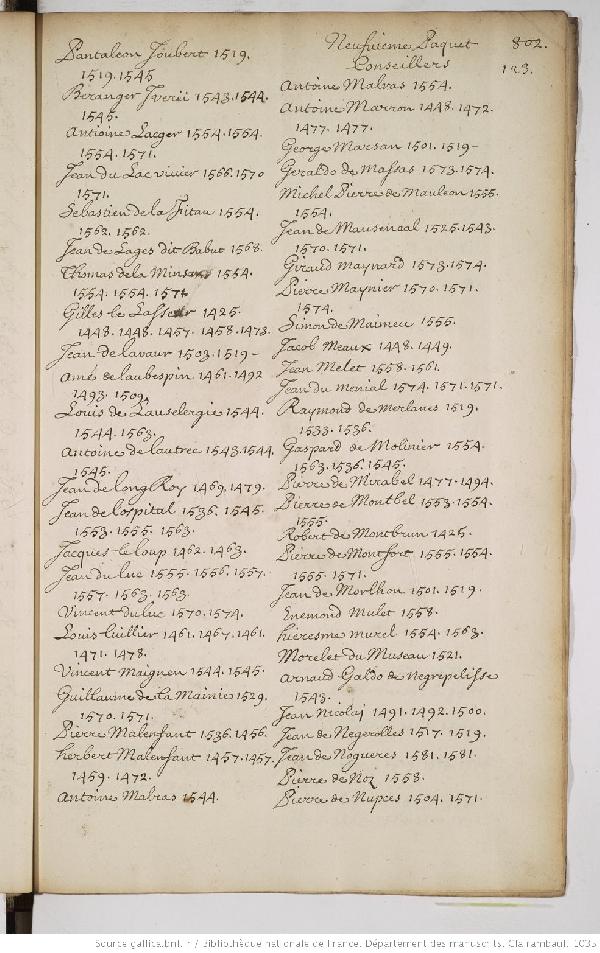 Neufuieme Paquet 802.
Conseillers 123.
Pantaleon Joubert 1519.
1519. 1545
Beranger Jverii 1543. 1544.
1545.
Antioine Laeger 1554. 1554.
1554. 1571.
Jean du Lac vivier 1566. 1570
1571.
Sebastien de la Fitau 1554.
1562. 1562.
Jean de Lages dit Babut 1568.
Thomas dela 1554.
1554. 1554. 1571
Gilles le 1425.
1448. 1448. 1457. 1458. 1473.
Jean de lavaur 1503. 1519 -
Amé de laubespin 1461. 1492
1493. 1509.
Louis de Lauselergie 1544.
1544. 1563.
Antoine de lautrec 1543. 1544.
1545.
Jean de long Roy 1469. 1479.
Jean de lospital 1536. 1545.
1553. 1555. 1563.
Jacques le loup 1462. 1463.
Jean du luc 1555. 1556. 1557.
1557. 1563. 1563.
Vincent du luc 1570. 1574.
Louis luillier 1461. 1467. 1461.
1471. 1478.
Vincent Maignen 1544. 1545.
Guillaume de la Mainie 1529.
1570. 1571.
Pierre Malenfant 1536. 1456.
herbert Malenfant 1457. 1457.
1459. 1472.
Antoine Malras 1544.
Antoine Malras 1554.
Antoine Marron 1448. 1472.
1477. 1477.
George Marsan 1501. 1519 -
Geraldo de Massas 1573. 1574.
Michel Pierre de Mauleon 1555.
1554.
Jean de Mausencal 1525. 1543.
1570. 1571.
Giraud Maynard 1573. 1574.
Pierre Maynier 1570. 1571.
1574.
Simon de 1555.
Jacob Meaux 1448. 1449.
Jean Melet 1558. 1561.
Jean du menial 1574. 1571. 1571.
Raymond de Merlanes 1519.
1533. 1536.
Gaspard de Molinier 1554.
1563. 1536. 1545.
Pierre de Mirabel 1477. 1494.
Pierre de Montbel 1553. 1554.
1555.
Robert de Montbrun 1425.
Pierre de Montfort 1555. 1554.
1555. 1571.
Jean de Morlhon 1501. 1519.
Enemond Mulet 1558.
hieresme murel 1554. 1563.
Morelet du Museau 1521.
Arnaud Galdo de negrepelisse
1543.
Jean Nicolaj 1491. 1492. 1500.
Jean de Negerolles 1517. 1519.
Jean de Nogueres 1581. 1581.
Pierre de Noz 1558.
Pierre de Nupces 1504. 1571.
Source gallica.bnf.fr / Bibliothèque nationale de France. Département des manuscrits. Clairambault 1035